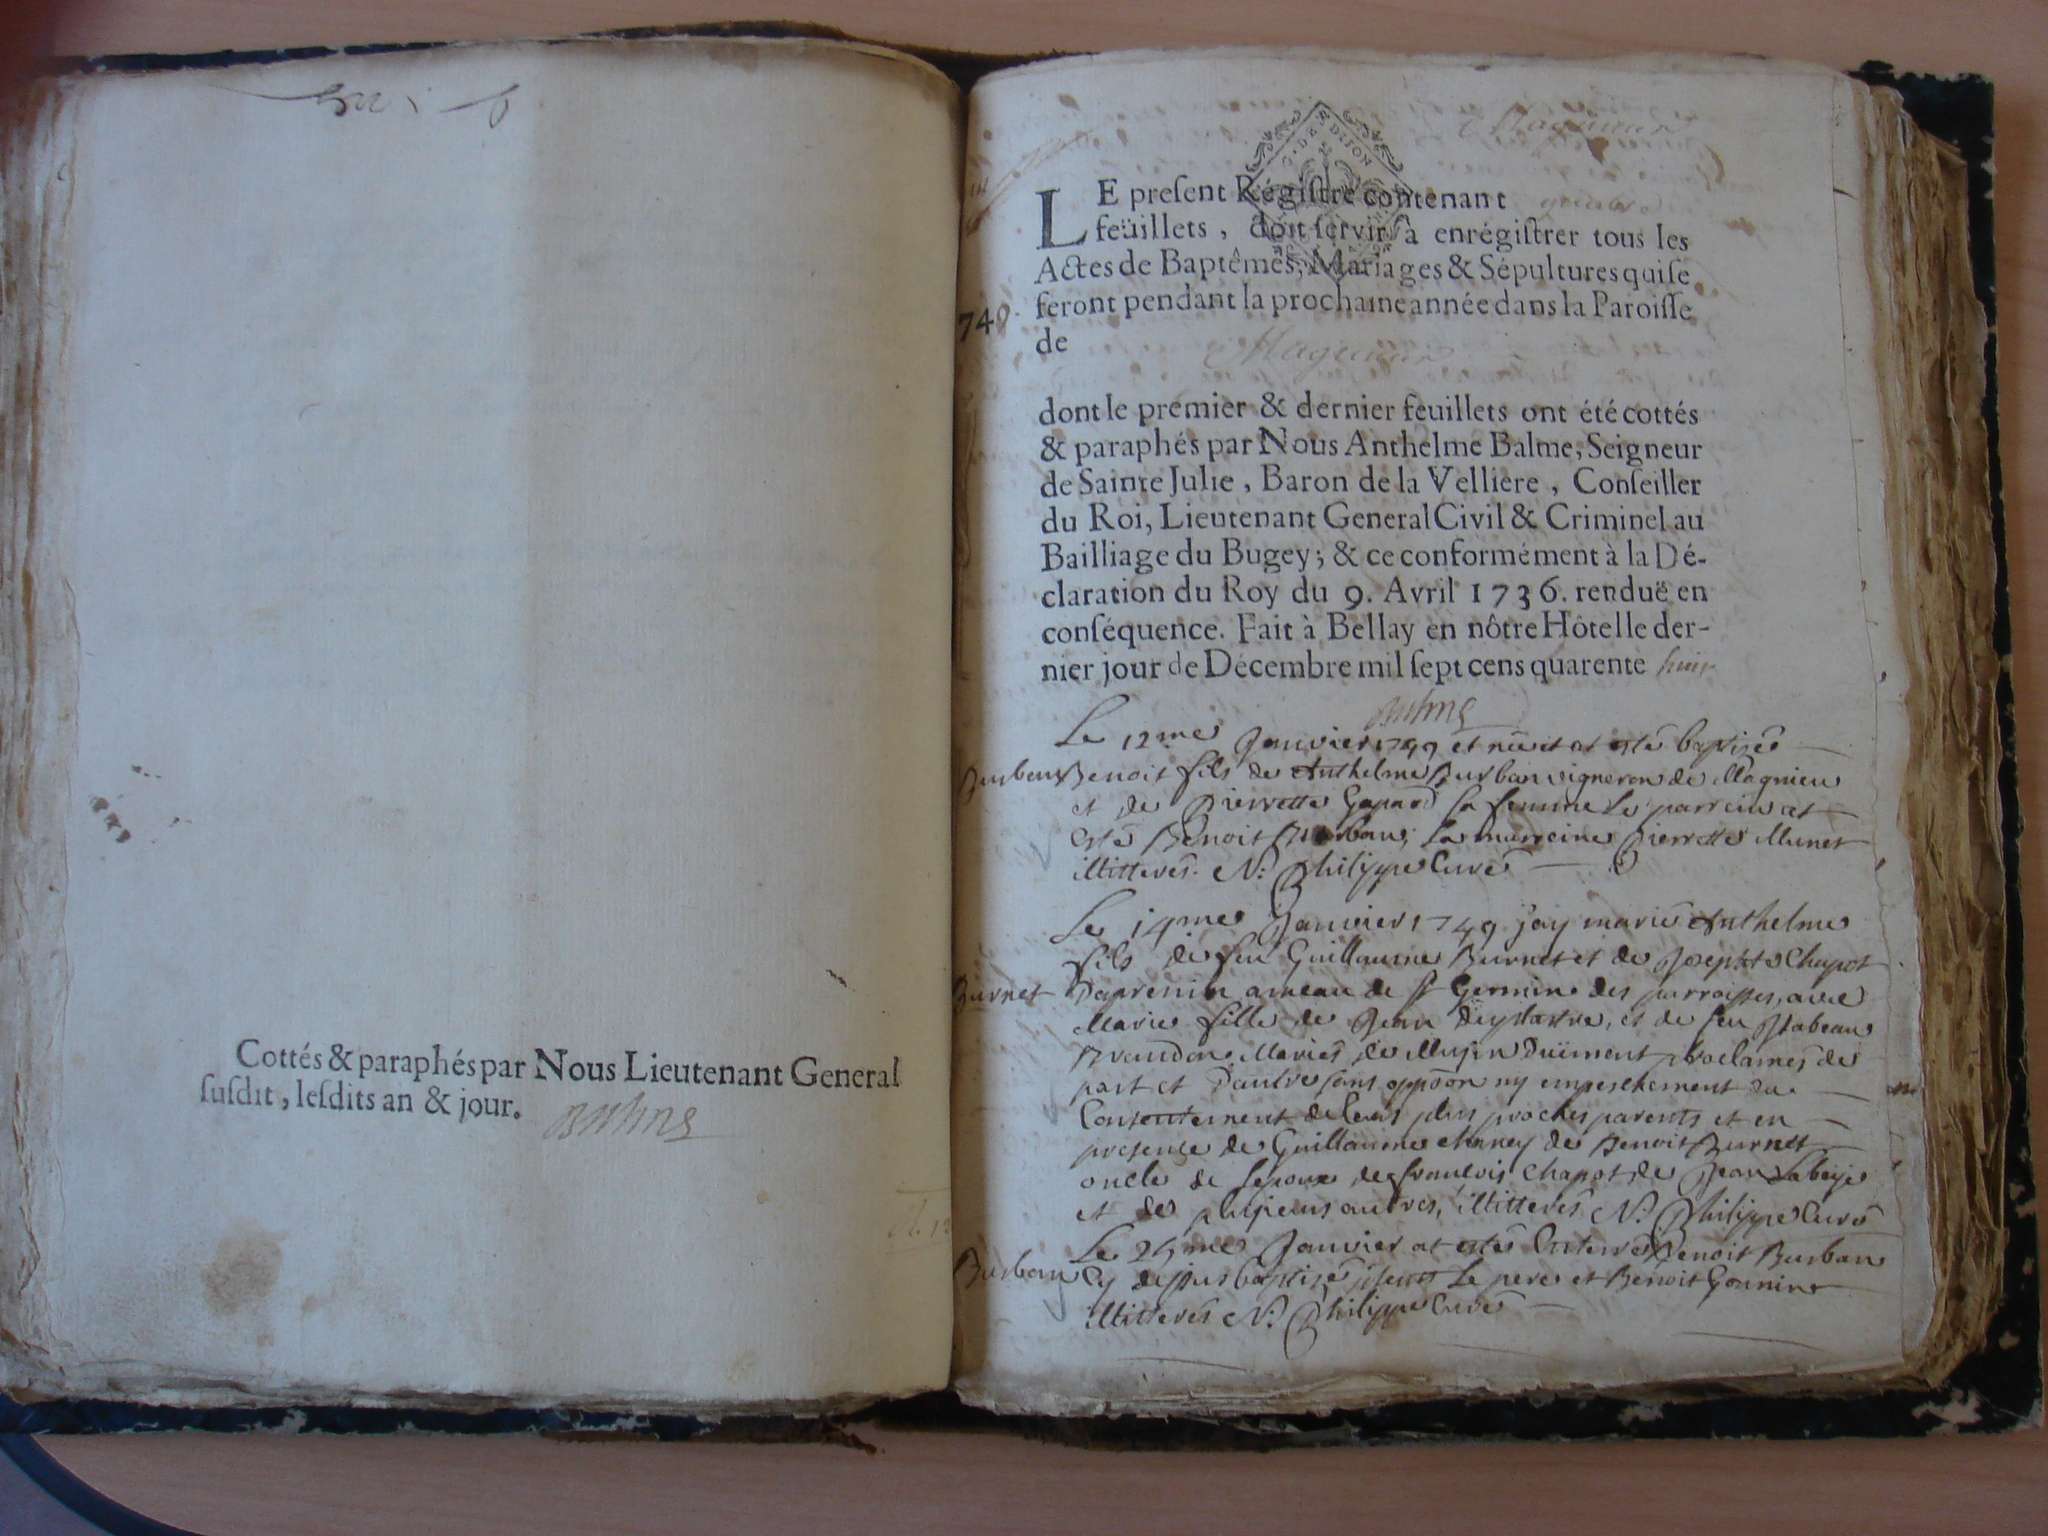 Cottés & paraphés par Nous Lieutenant General
ſuſdit, leſdits an & jour.
G. DE DIJON
LE preſent Régiſtre contenant
feüillets, doit ſervir à enrégiſtrer tous les
Actes de Baptêmes, Mariages & Sépultures qui ſe
feront pendant la prochaine année dans la Paroiſſe
de
Magnieu
dont le premier & dernier feuillets ont été cottés
& paraphés par Nous Anthelme Balme, Seigneur
de Sainte Julie, Baron de la Velliere, Conſeiller
du Roi, Lieutenant General Civil & Criminel au
Bailliage du Bugey; & ce conformément à la Dé-
claration du Roy du 9. Avril 1736. renduë en
conſéquence. Fait à Bellay en nôtre Hôtel le der-
nier jour de Décembre mil ſept cens quarente huit
749
Le 12me Janvier 1749 et at esté baptisé
Burban Benoit fils de Anthelme Burban vigneron de Magnieu
et de Pierrette sa femme le parrein at
esté Benoit Burban, la marreine Pierrette Munet
illitterés. N: Philippe Curé
Le 14me Janvier 1749 j'ay marié Anthelme
fils de feu Guillaume Burnet et de Josephte Chapot
Burnet ameau de St Germin des parroisses, avec
Marie fille de Jean et de feu Isabeau
proclamés de
part et d'autre sans oppõon ny empeschement du
Consentement de leurs plus proches parents et en
presence de Guillaume de Benoit Burnet
oncle de l'epoux de francois Chapot, de Jean
et de plusieurs autres, illitterés N. Philippe Curé
Le 25me Janvier at esté Enterré Benoit Burban
Burban Cy dessus baptisé le pere et Benoit Gonnin
illitterés N. Philippe Curé